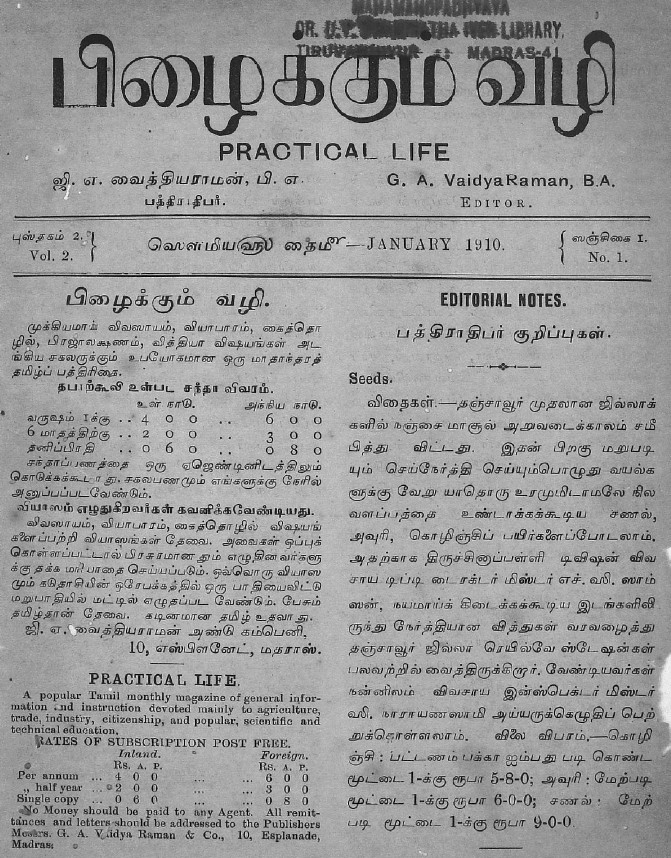 MAHAMAHOPADHYAYA
DR. LIBRARY,
MADRAS-41
பிழைக்கும் வழி
PRACTICAL LIFE
ஜி. எ. வைத்தியராமன், பி. எ.
பத்திராதிபர்.
G. A. VaidyaRaman, B.A.
EDITOR.
புஸ்தகம் 2.
Vol. 2.
ஸௌமியஹு தைமீ—JANUARY 1910.
ஸஞ்சிகை 1.
No. 1.
பிழைக்கும் வழி.
முக்கியமாய் விவஸாயம், வியாபாரம், கைத்தொ
ழில், பிரஜாலக்ஷணம், வித்தியா விஷயங்கள் அட
ங்கிய சகலருக்கும் உபயோகமான ஒரு மாதாந்தரத்
தமிழ்ப் பத்திரிகை.
தபாற்கூலி உள்பட சந்தா விவரம்.
உள் நாடு. அந்நிய நாடு.
வருஷம் 1க்கு .. 4 0 0 .. 6 0 0
6 மாதத்திற்கு .. 2 0 0 .. 3 0 0
தனிப்பிரதி .. 0 6 0 .. 0 8 0
சந்தாப்பணத்தை ஒரு ஏஜெண்டினிடத்திலும்
கொடுக்கக்கூடாது. சகலபணமும் எங்களுக்கு நேரில்
அனுப்பப்படவேண்டும்.
வியாஸம் எழுதுகிறவர்கள் கவனிக்கவேண்டியது.
விவஸாயம், வியாபாரம், கைத்தொழில் விஷயங்
களைப்பற்றி வியாஸங்கள் தேவை. அவைகள் ஒப்புக்
கொள்ளப்பட்டால் பிரசுரமானதும் எழுதினவர்களு
க்கு தக்க மரியாதை செய்யப்படும். ஒவ்வொரு வியாஸ
மும் கடுதாசியின் ஒரேபக்கத்தில் ஒரு பாதியைவிட்டு
மறுபாதியில் மட்டில் எழுதப்பட வேண்டும். பேசும்
தமிழ்தான் தேவை. கடினமான தமிழ் உதவாது.
ஜி. எ. வைத்தியராமன் அண்டு கம்பெனி,
10, எஸ்பிளனேட், மதராஸ்.
PRACTICAL LIFE.
A popular Tamil monthly magazine of general infor-
mation and instruction devoted mainly to agriculture,
trade, industry, citizenship, and popular, scientific and
technical education.
RATES OF SUBSCRIPTION POST FREE.
Inland. Foreign.
Rs. A. P. Rs. A. P.
Per annum ... 4 0 0 ... ... 6 0 0
„ half year ... 2 0 0 ... ... 3 0 0
Single copy ... 0 6 0 ... ... 0 8 0
No Money should be paid to any Agent. All remit-
tances and letters should be addressed to the Publishers
Messrs. G. A. Vaidya Raman & Co., 10, Esplanade,
Madras.
EDITORIAL NOTES.
பத்திராதிபர் குறிப்புகள்.
Seeds.
விதைகள்.—தஞ்சாவூர் முதலான ஜில்லாக்
களில் நஞ்சை மாசூல் அறுவடைக்காலம் சமீ
பித்து விட்டது. இதன் பிறகு மறுபடி
யும் செய்நேர்த்தி செய்யும்பொழுது வயல்க
ளுக்கு வேறு யாதொரு உரமுமிடாமலே நில
வளப்பத்தை உண்டாக்கக்கூடிய சணல்,
அவுரி, கொழிஞ்சிப் பயிர்களைப்போடலாம்.
அதற்காக திருச்சினாப்பள்ளி டிவிஷன் விவ
சாய டிப்டி டைரக்டர் மிஸ்டர் எச். ஸி. ஸாம்
ஸன், நயமாய்க் கிடைக்கக்கூடிய இடங்களிலி
ருந்து நேர்த்தியான வித்துகள் வரவழைத்து
தஞ்சாவூர் ஜில்லா ரெயில்வே ஸ்டேஷன்கள்
பலவற்றில் வைத்திருக்கிறார். வேண்டியவர்கள்
நன்னிலம் விவசாய இன்ஸ்பெக்டர் மிஸ்டர்
வி. நாராயணஸாமி அய்யருக்கெழுதிப் பெற்
றுக்கொள்ளலாம். விலை விபரம்.—கொழி
ஞ்சி: பட்டணம் பக்கா ஐம்பது படி கொண்ட
மூட்டை 1-க்கு ரூபா 5-8-0; அவுரி: மேற்படி
மூட்டை 1-க்கு ரூபா 6-0-0; சணல்: மேற்
படி மூட்டை 1-க்கு ரூபா 9-0-0.